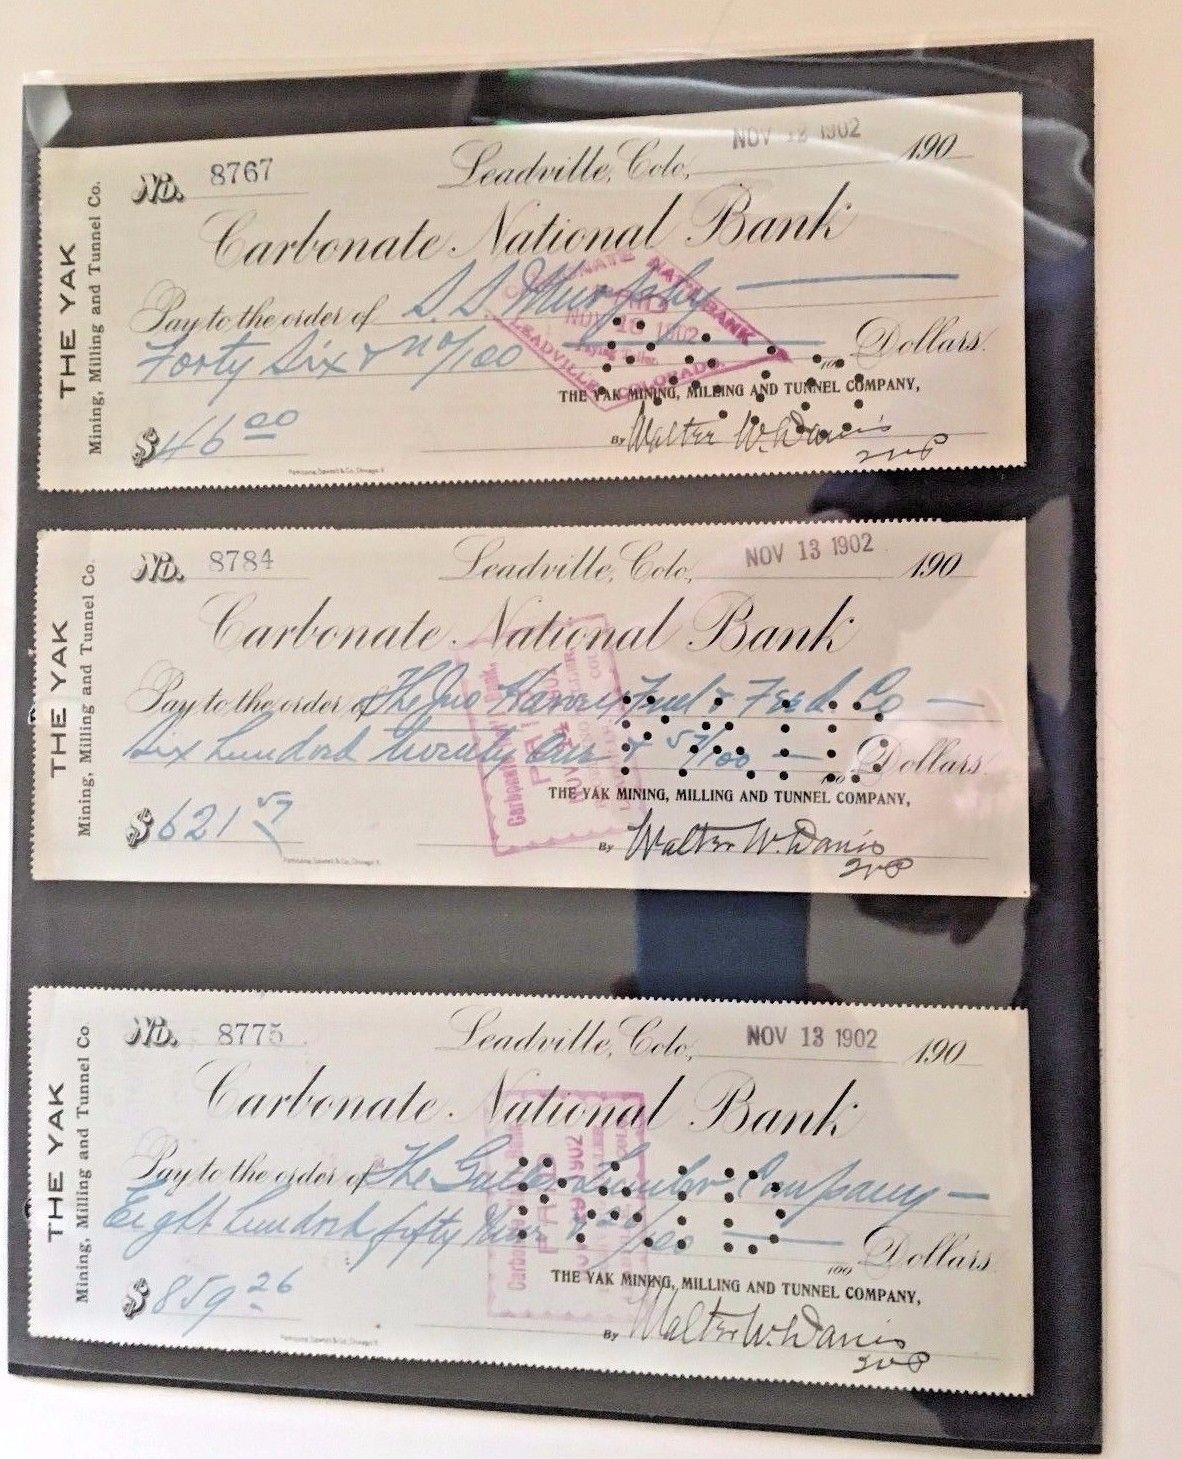 THE YAK
Mining, Milling and Tunnel Co.
No. 8767
Leadville, Colo, NOV 1902 190
Carbonate National Bank
Pay to the order of S. S. Murphy
Forty Six & no/100 Dollars.
THE YAK MINING, MILLING AND TUNNEL COMPANY,
$46 00
By Walter W. Davis
NAT'L BANK
NOV 1902
LEADVILLE, COLORADO
THE YAK
Mining, Milling and Tunnel Co.
No. 8784
Leadville, Colo, NOV 13 1902 190
Carbonate National Bank
Pay to the order of The Jno Harvey Fuel & Feed Co
Six hundred twenty One & 57/100 Dollars.
THE YAK MINING, MILLING AND TUNNEL COMPANY,
$621 57
By Walter W. Davis
Carbonate Bank
PAID
THE YAK
Mining, Milling and Tunnel Co.
No. 8775
Leadville, Colo, NOV 13 1902 190
Carbonate National Bank
Pay to the order of The Lumber Company
Eight hundred fifty Nine & 26/100 Dollars
THE YAK MINING, MILLING AND TUNNEL COMPANY,
$859 26
By Walter W. Davis
Carbonate Bank
PAID
1902